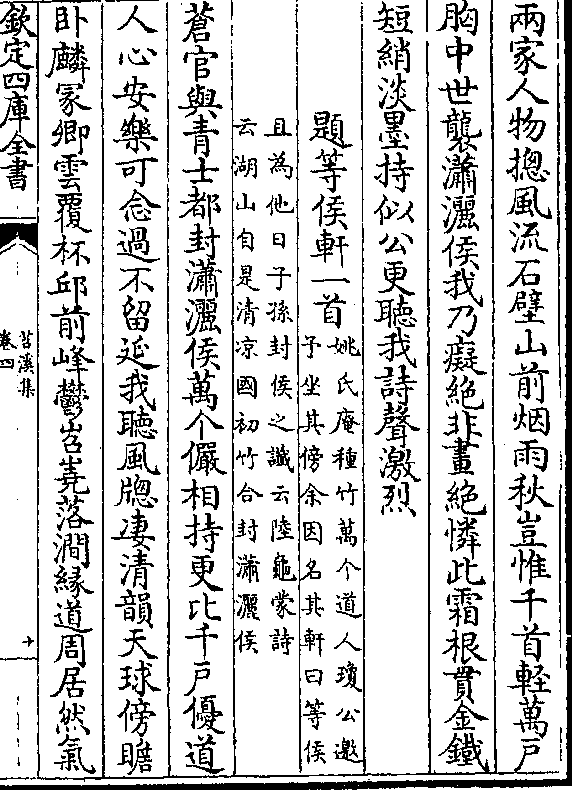 兩家人物揔風流石壁山前烟雨秋豈惟千首輕萬戸
胸中世襲瀟灑侯我乃癡絶非畫絶憐此霜根貫金鐵
短綃淡墨持似公更聽我詩聲激烈
題等侯軒一首
姚氏庵種竹萬个道人瓊公邀
予坐其傍余因名其軒曰等侯
且為他日子孫封侯之讖云陸龜蒙詩
云湖山自是清凉國初竹合封瀟灑侯
蒼官與青士都封瀟灑侯萬个儼相持更比千戸優道
人心安樂可念過不留延我聽風牕凄清韻天球傍瞻
卧麟冢卿雲覆杯邱前峰鬱岧嶤落澗縁道周居然氣
欽定四庫全書
苕溪集
卷四